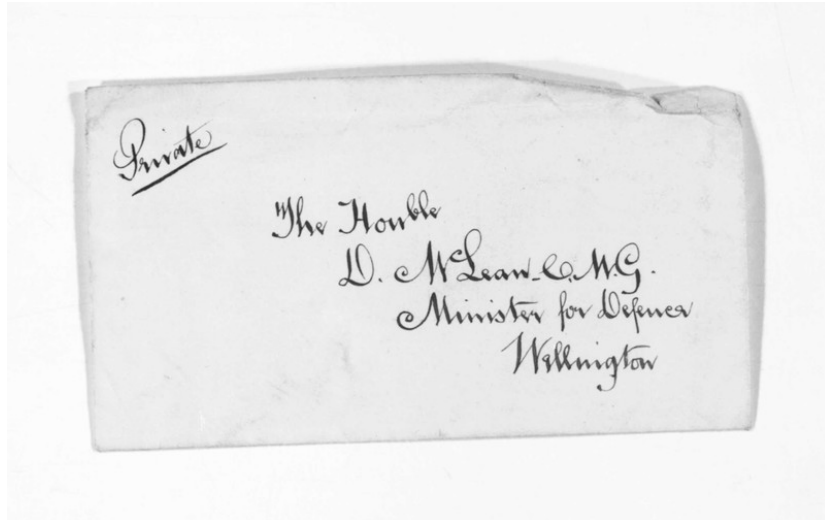 Private
The Honble
D. McLean. C.M.G.
Minister for Defence
Wellington